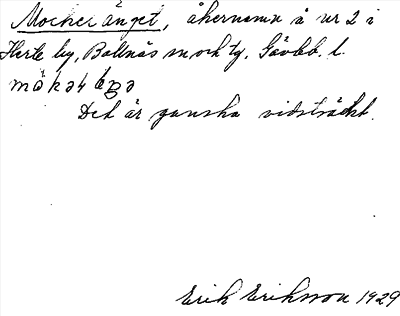 Mocker änget, åkernamn å nr 2 i
Herte by, Bollnäs sn och tg. Gävleb. l.
Det är ganska vidsträckt.
Erik Eriksson 1929